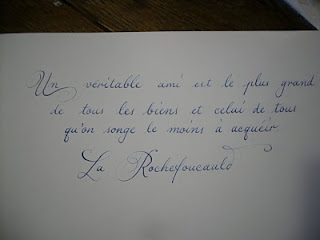 Un véritable ami est le plus grand
de tous les biens et celui de tous
qu'on songe le moins à acquéir.
La Rochefoucauld